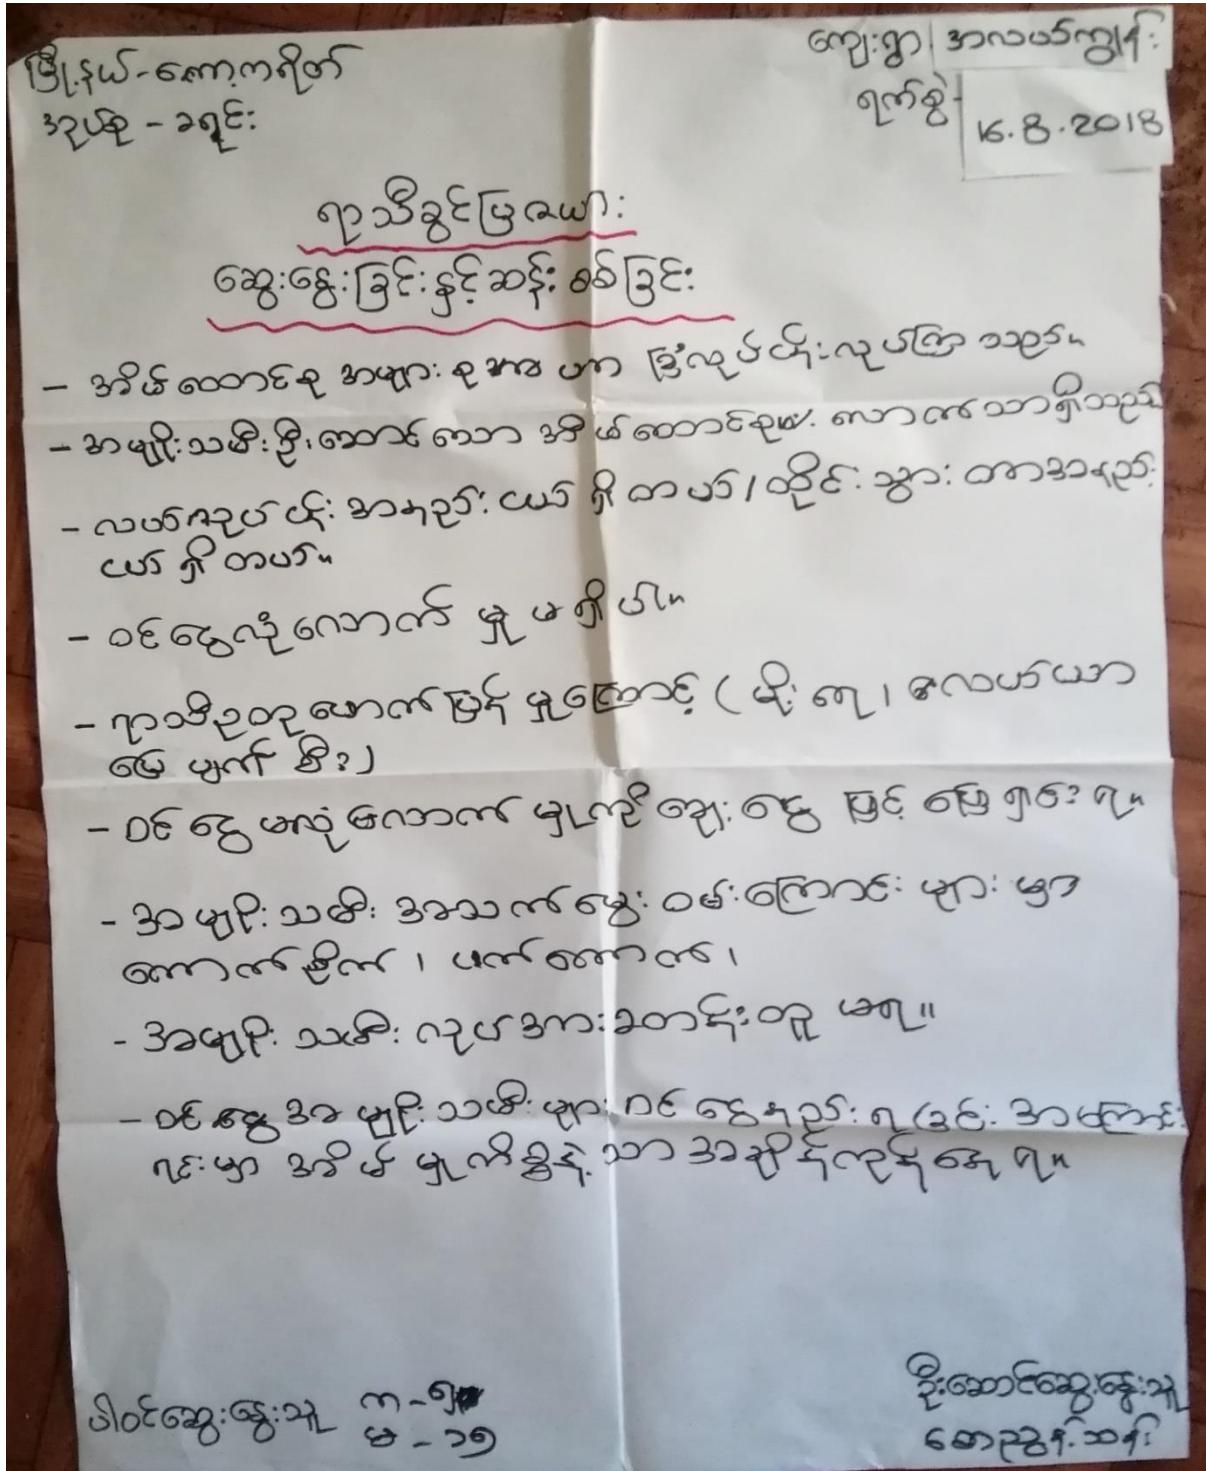 မြို့နယ်-ကော့ကရိတ်
ကျေးရွာ | အလယ်ကျွန်း
အုပ်စု - ခရင်း
ရက်စွဲ- 16.8.2018
ရာသီခွင်ပြဇယား
ဆွေးနွေးခြင်းနှင့်ဆန်းစစ်ခြင်း
- အိမ်ထောင်စု အများစုဟာ ခြံလုပ်ငန်းလုပ်ကြသည်။
- အမျိုးသမီးဦးဆောင်သော အိမ်ထောင်စု လောက်သာရှိသည်
- လယ်လုပ်ငန်း အနည်းငယ်ရှိတယ်/ထိုင်းသွားတာအနည်း
ငယ်ရှိတယ်။
- ဝင်ငွေလုံလောက်မှုမရှိပါ။
- ရာသီဥတုဖောက်ပြန်မှုကြောင့် (မိုးရေ၊ လယ်ယာ
မြေပျက်စီး)
- ဝင်ငွေမလုံလောက်မှုကို ချေးငွေဖြင့်ဖြေရှင်းရ။
- အမျိုးသမီးအသက်မွေးဝမ်းကြောင်းများမှာ
ကောက်စိုက်၊ ပက်ကောက်၊
- အမျိုးသမီးလုပ်အားခတန်းတူမရ။
- ဝင်ငွေအမျိုးသမီးများဝင်ငွေနည်းရခြင်းအကြောင်း
ရင်းမှာ အိမ်မှုကိစ္စနဲ့သာအချိန်ကုန်နေရ။
ပါဝင်ဆွေးနွေးသူ ကျ-၅
မ-၁၅
ဦးဆောင်ဆွေးနွေးသူ
စောညွန့်သန်း